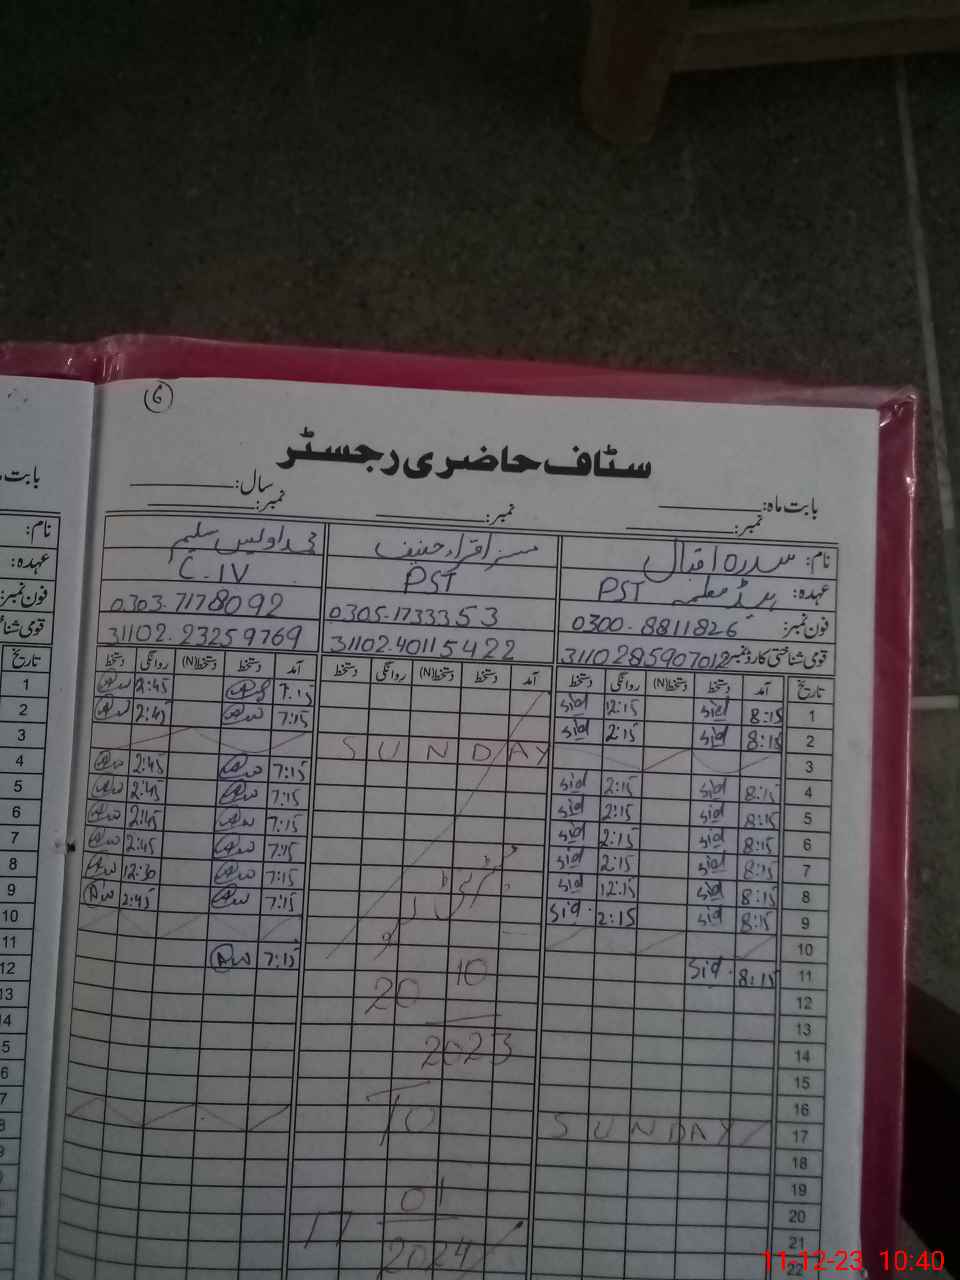 6
سٹاف حاضری رجسٹر
بابت ماہ: سال:
نمبر: نمبر: نمبر:
نام: سدرہ اقبال مسز اقراء حنیف محمد اویس سلیم
عہدہ: ہیڈ معلمہ PST PST C-IV
فون نمبر: 0300-8811826 0305-1733353 0303-7178092
قومی شناختی کارڈ نمبر 3110285907012 31102-40115422 31102-23259769
تاریخ آمد دستخط دستخط(N) روانگی دستخط آمد دستخط دستخط(N) روانگی دستخط آمد دستخط دستخط(N) روانگی دستخط
1 8:15 sid 12:15 sid 7:15 Aw 2:45 Aw
2 8:15 sid 2:15 sid 7:15 Aw 2:45 Aw
3 SUNDAY
4 8:15 sid 2:15 sid 7:15 Aw 2:45 Aw
5 8:15 sid 2:15 sid 7:15 Aw 2:45 Aw
6 8:15 sid 2:15 sid 7:15 Aw 2:45 Aw
7 8:15 sid 2:15 sid 7:15 Aw 2:45 Aw
8 8:15 sid 12:15 sid 7:15 Aw 12:30 Aw
9 8:15 sid 2:15 sid 7:15 Aw 2:45 Aw
10
11 8:15 sid 7:15 Aw
12 20 10
13
14 2023
15
16 To
17 SUNDAY
18
19
20 17 01
21 2024
22
بابت ماہ
نام:
عہدہ:
فون نمبر:
قومی شنا
تاریخ
1
2
3
4
5
6
7
8
9
10
11
12
13
14
5
6
7
8
9
11-12-23 10:40